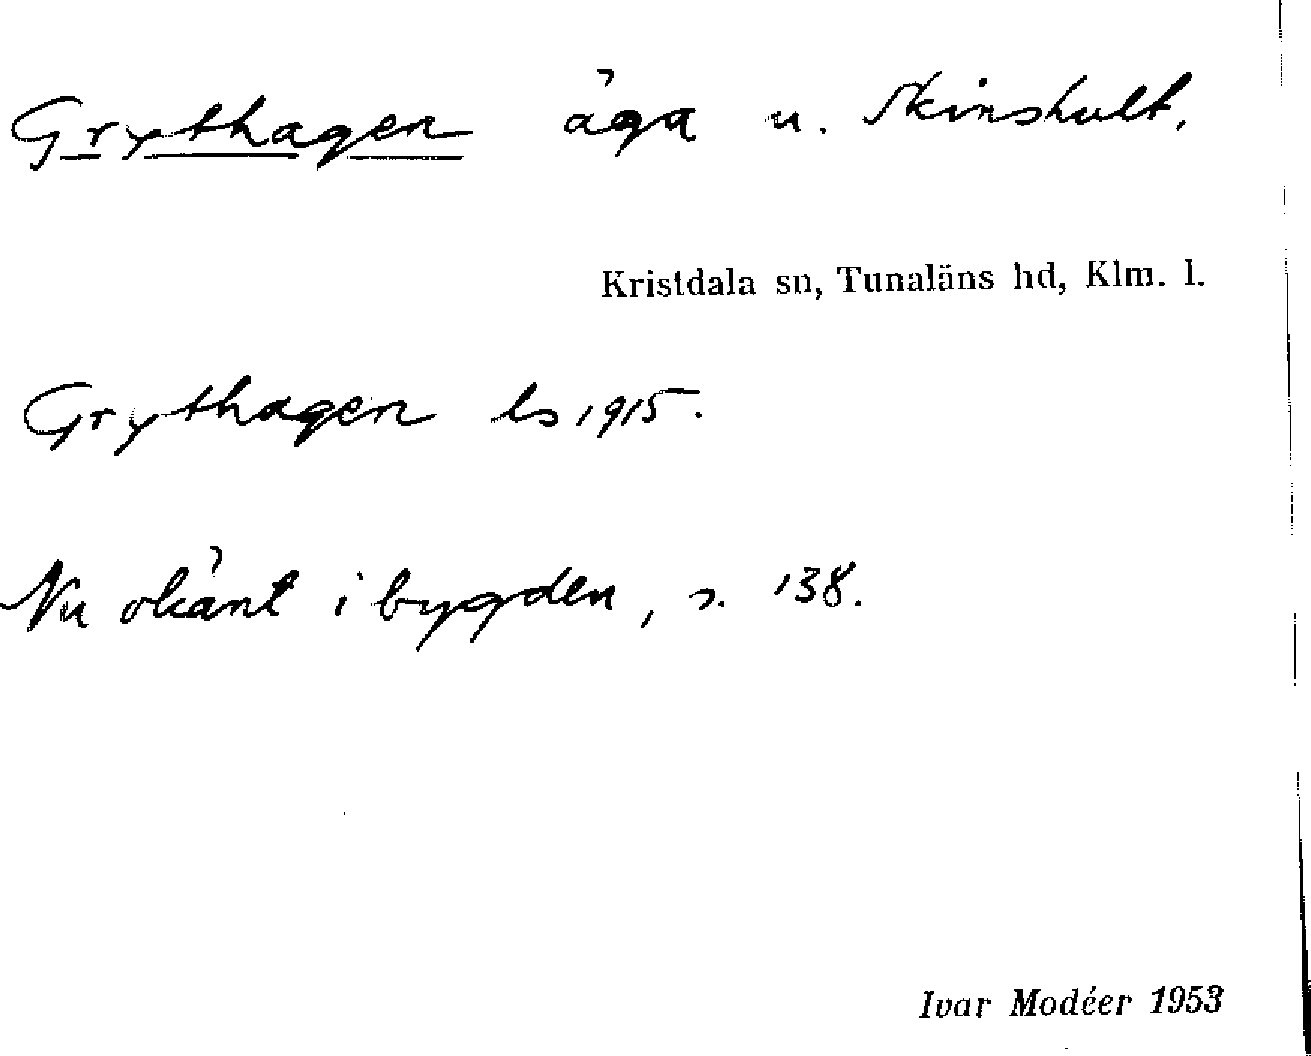 Grythagen äga u. Skinshult.
Kristdala sn, Tunaläns hd, Klm. l.
Grythagen ls 1915.
Nu okänt i bygden, s. 138.
Ivar Modéer 1953